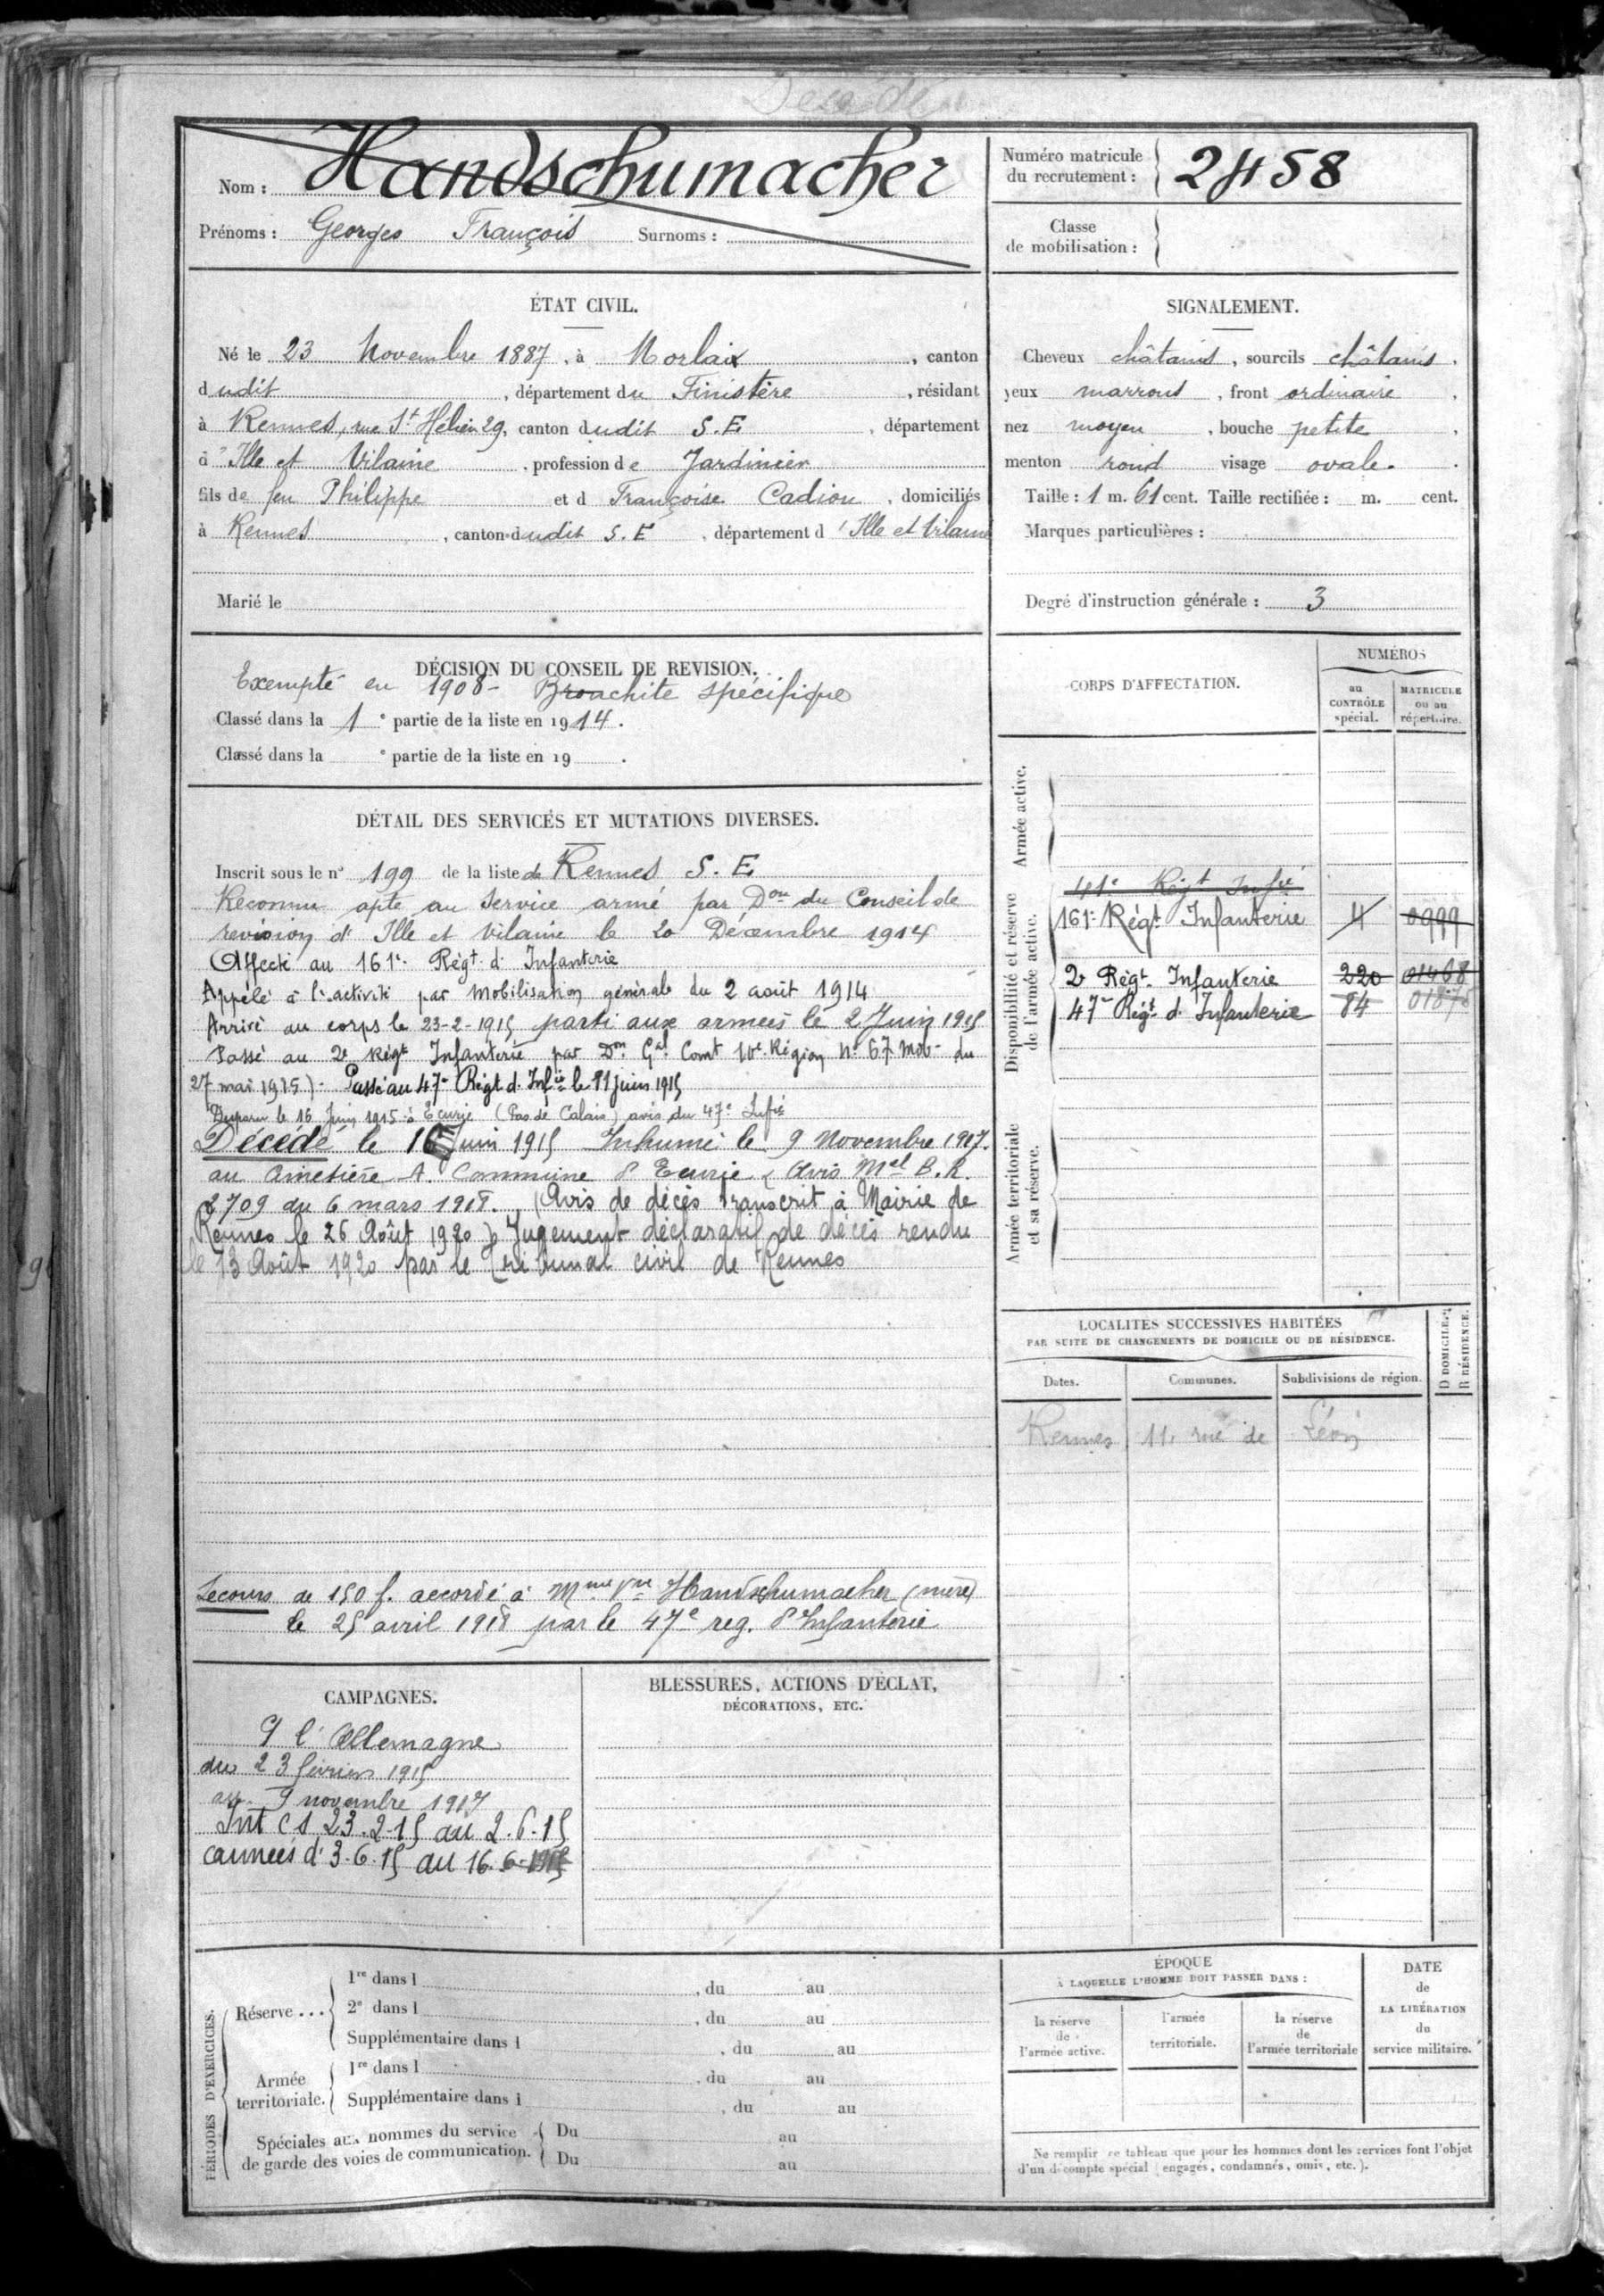 Décédé
Nom : Handschumacher
Prénoms : Georges François Surnoms :
Numéro matricule du recrutement : 2458
Classe de mobilisation :
ÉTAT CIVIL.
Né le 23 Novembre 1887, à Morlaix, canton
dudit, département du Finistère, résidant
à Rennes, rue St Hélier 29, canton dudit S.E, département
d'Ille et Vilaine, profession de Jardinier
fils de feu Philippe et d Françoise Cadiou, domiciliés
à Rennes, canton dudit S.E, département d'Ille et Vilaine
Marié le
SIGNALEMENT.
Cheveux châtains, sourcils châtains,
yeux marrons, front ordinaire,
nez moyen, bouche petite,
menton rond visage ovale.
Taille : 1 m. 61 cent. Taille rectifiée : m. cent.
Marques particulières :
Degré d'instruction générale : 3
DÉCISION DU CONSEIL DE REVISION.
Exempté en 1908 - Bronchite spécifique
Classé dans la 1e partie de la liste en 1914.
Classé dans la e partie de la liste en 19 .
DÉTAIL DES SERVICES ET MUTATIONS DIVERSES.
Inscrit sous le n° 199 de la liste de Rennes S.E
Reconnu apte au Service armé par Don du Conseil de
révision d'Ille et Vilaine le 20 Décembre 1914
Affecté au 161e Régt d'Infanterie
Appelé à l'activité par Mobilisation générale du 2 août 1914
Arrivé au corps le 23-2-1915 parti aux armées le 2 Juin 1915
Passé au 2e Régt Infanterie par Don Gal Comt 10e Région No 67 Mob- du
27 mai 1915). Passé au 47e Régt d'Infie le 11 juin 1915
Disparu le 16 Juin 1915 à Ecurie (Pas de Calais) avis du 47e Infie
Décédé le 16 Juin 1915 Inhumé le 9 Novembre 1917.
au cimetière A. Commune d'Ecurie Avis Mel B.R.
2709 du 6 mars 1918. (Avis de décès transcrit à Mairie de
Rennes le 26 Août 1920) Jugement déclaratif de décès rendu
le 13 Août 1920 par le Tribunal civil de Rennes
Secours de 150 f. accordé à Mme Vve Handschumacher (mère)
le 25 avril 1918 par le 47e reg. d'Infanterie
CORPS D'AFFECTATION.
NUMÉROS
au CONTRÔLE spécial.
MATRICULE ou au répertoire.
Armée active.
Disponibilité et réserve de l'armée active.
41e Régt Infie
161e Régt Infanterie 4 0999
2e Régt Infanterie 220 01468
47e Régt d'Infanterie 84 01876
Armée territoriale et sa réserve.
LOCALITÉS SUCCESSIVES HABITÉES
PAR SUITE DE CHANGEMENTS DE DOMICILE OU DE RÉSIDENCE.
Dates. Communes. Subdivisions de région.
D DOMICILE. R RÉSIDENCE.
Rennes 11, rue de Léon
CAMPAGNES.
C l'Allemagne
du 23 février 1915
au 9 novembre 1917
Int C S 23.2-15 au 2.6.15
C armées d' 3.6.15 au 16.6-1915
BLESSURES, ACTIONS D'ÉCLAT,
DÉCORATIONS, ETC.
PÉRIODES D'EXERCICES.
Réserve ...
1re dans l , du au
2e dans l , du au
Supplémentaire dans l , du au
Armée territoriale.
1re dans l , du au
Supplémentaire dans l , du au
Spéciales aux hommes du service
de garde des voies de communication.
Du au
Du au
ÉPOQUE
À LAQUELLE L'HOMME DOIT PASSER DANS :
la réserve de l'armée active.
l'armée territoriale.
la réserve de l'armée territoriale
DATE de LA LIBÉRATION du service militaire.
Ne remplir ce tableau que pour les hommes dont les services font l'objet
d'un décompte spécial (engagés, condamnés, omis, etc.).